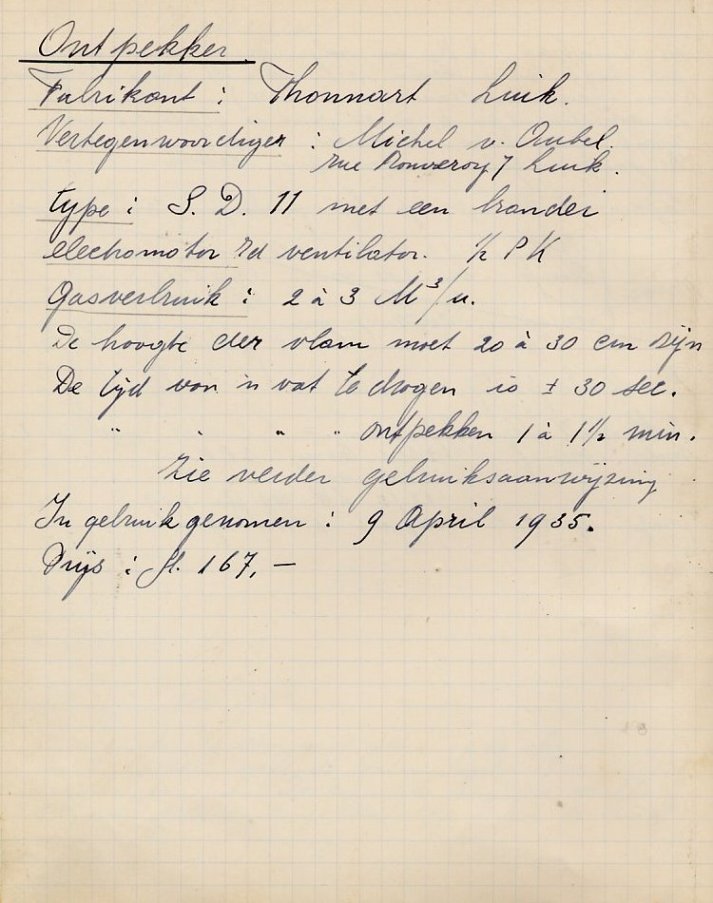 Ontpekker.
Fabrikant : Thonnart Luik.
Vertegenwoordiger : Michel v. Aubel.
rue Bonveroy 7 Luik.
type : S. D. 11 met een brander
electromotor v/d ventilator. 1/2 PK
Gasverbruik : 2 à 3 M³/u.
De hoogte der vlam moet 20 à 30 cm zijn
De tijd van 'n vat te drogen is ± 30 sec.
" " " " ontpekken 1 à 1 1/2 min.
Zie verder gebruiksaanwijzing
In gebruik genomen : 9 April 1935.
Prijs : fl. 167,—